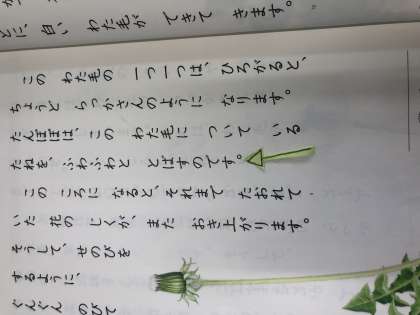 とに、白い わた毛が できて きます。
この わた毛の 一つ一つは、ひろがると、
ちょうど らっかさんのように なります。
たんぽぽは、この わた毛に ついて いる
たねを、ふわふわと とばすのです。
この ころに なると、それまで たおれて
いた 花の じくが、また おき上がります。
そうして、せのびを
するように、
ぐんぐん のびて